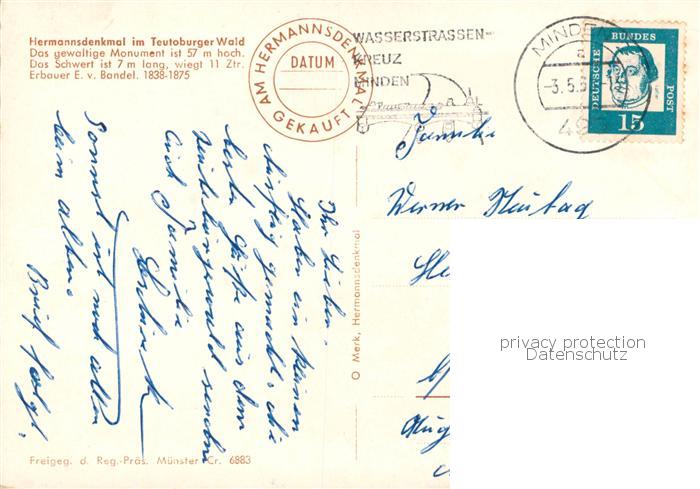 Hermannsdenkmal im Teutoburger Wald
Das gewaltige Monument ist 57 m hoch.
Das Schwert ist 7 m lang, wiegt 11 Ztr.
Erbauer E. v. Bandel. 1838-1875
AM HERMANNSDENKMAL
DATUM
GEKAUFT
WASSERSTRASSEN-
KREUZ
MINDEN
MINDEN
a
-3.5.6
49
DEUTSCHE
BUNDES
POST
15
Familie
Werner
Ihr Lieben.
Haben ein kleinen
Ausflug gemacht, die
besten Grüße aus dem
Teutoburgerwald senden
Euch Familie
Sonnst ist noch alles
beim alten.
Brief folgt.
O Merk, Hermannsdenkmal
Freigeg. d. Reg.-Präs. Münster Cr. 6883
privacy protection
Datenschutz